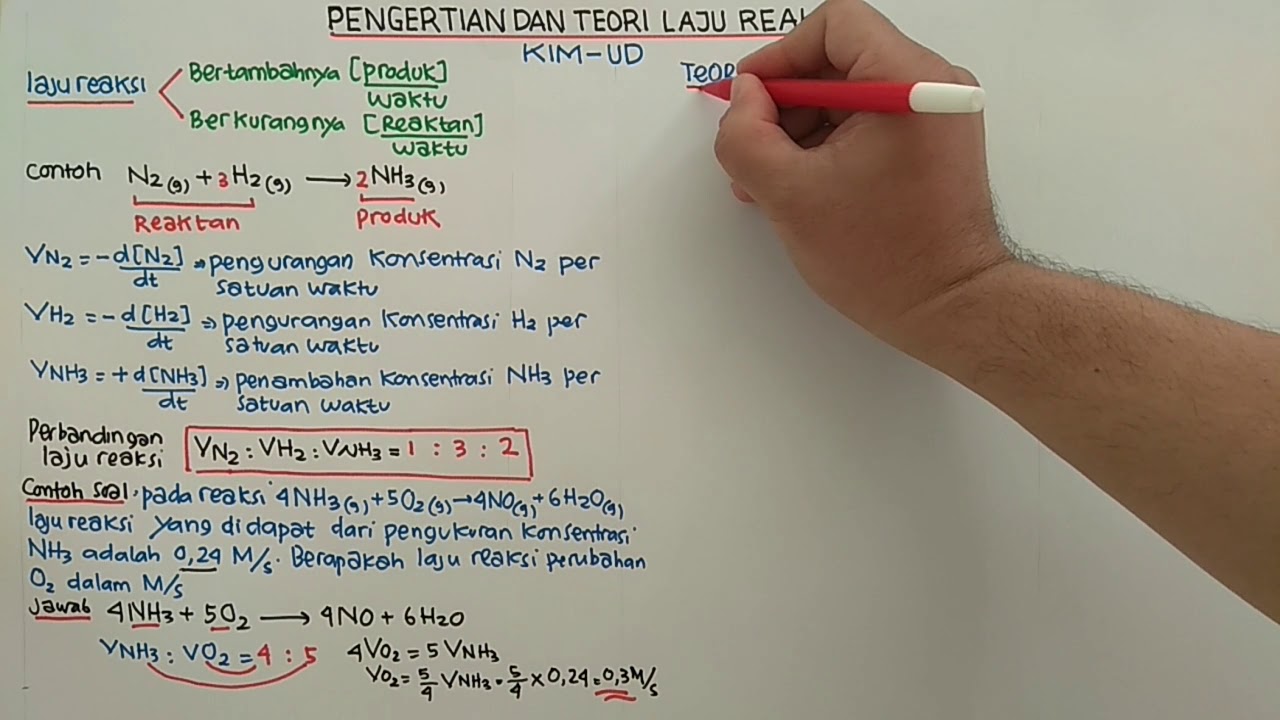 PENGERTIAN DAN TEORI LAJU REA
KIM-UD
laju reaksi
Bertambahnya [produk]
waktu
Berkurangnya [Reaktan]
waktu
Contoh N2(g) + 3H2(g) → 2NH3(g)
Reaktan Produk
VN2 = -d[N2] ⇒ pengurangan konsentrasi N2 per
dt satuan waktu
VH2 = -d[H2] ⇒ pengurangan konsentrasi H2 per
dt satuan waktu
VNH3 = +d[NH3] ⇒ penambahan konsentrasi NH3 per
dt satuan waktu
Perbandingan
laju reaksi
VN2 : VH2 : VNH3 = 1 : 3 : 2
Contoh Soal. pada reaksi 4NH3(g) + 5O2(g) → 4NO(g) + 6H2O(g)
laju reaksi yang didapat dari pengukuran konsentrasi
NH3 adalah 0,24 M/s. Berapakah laju reaksi perubahan
O2 dalam M/s
Jawab 4NH3 + 5O2 → 4NO + 6H2O
VNH3 : VO2 = 4 : 5
4VO2 = 5 VNH3
VO2 = 5/4 VNH3 = 5/4 x 0,24 = 0,3 M/s
TEOR